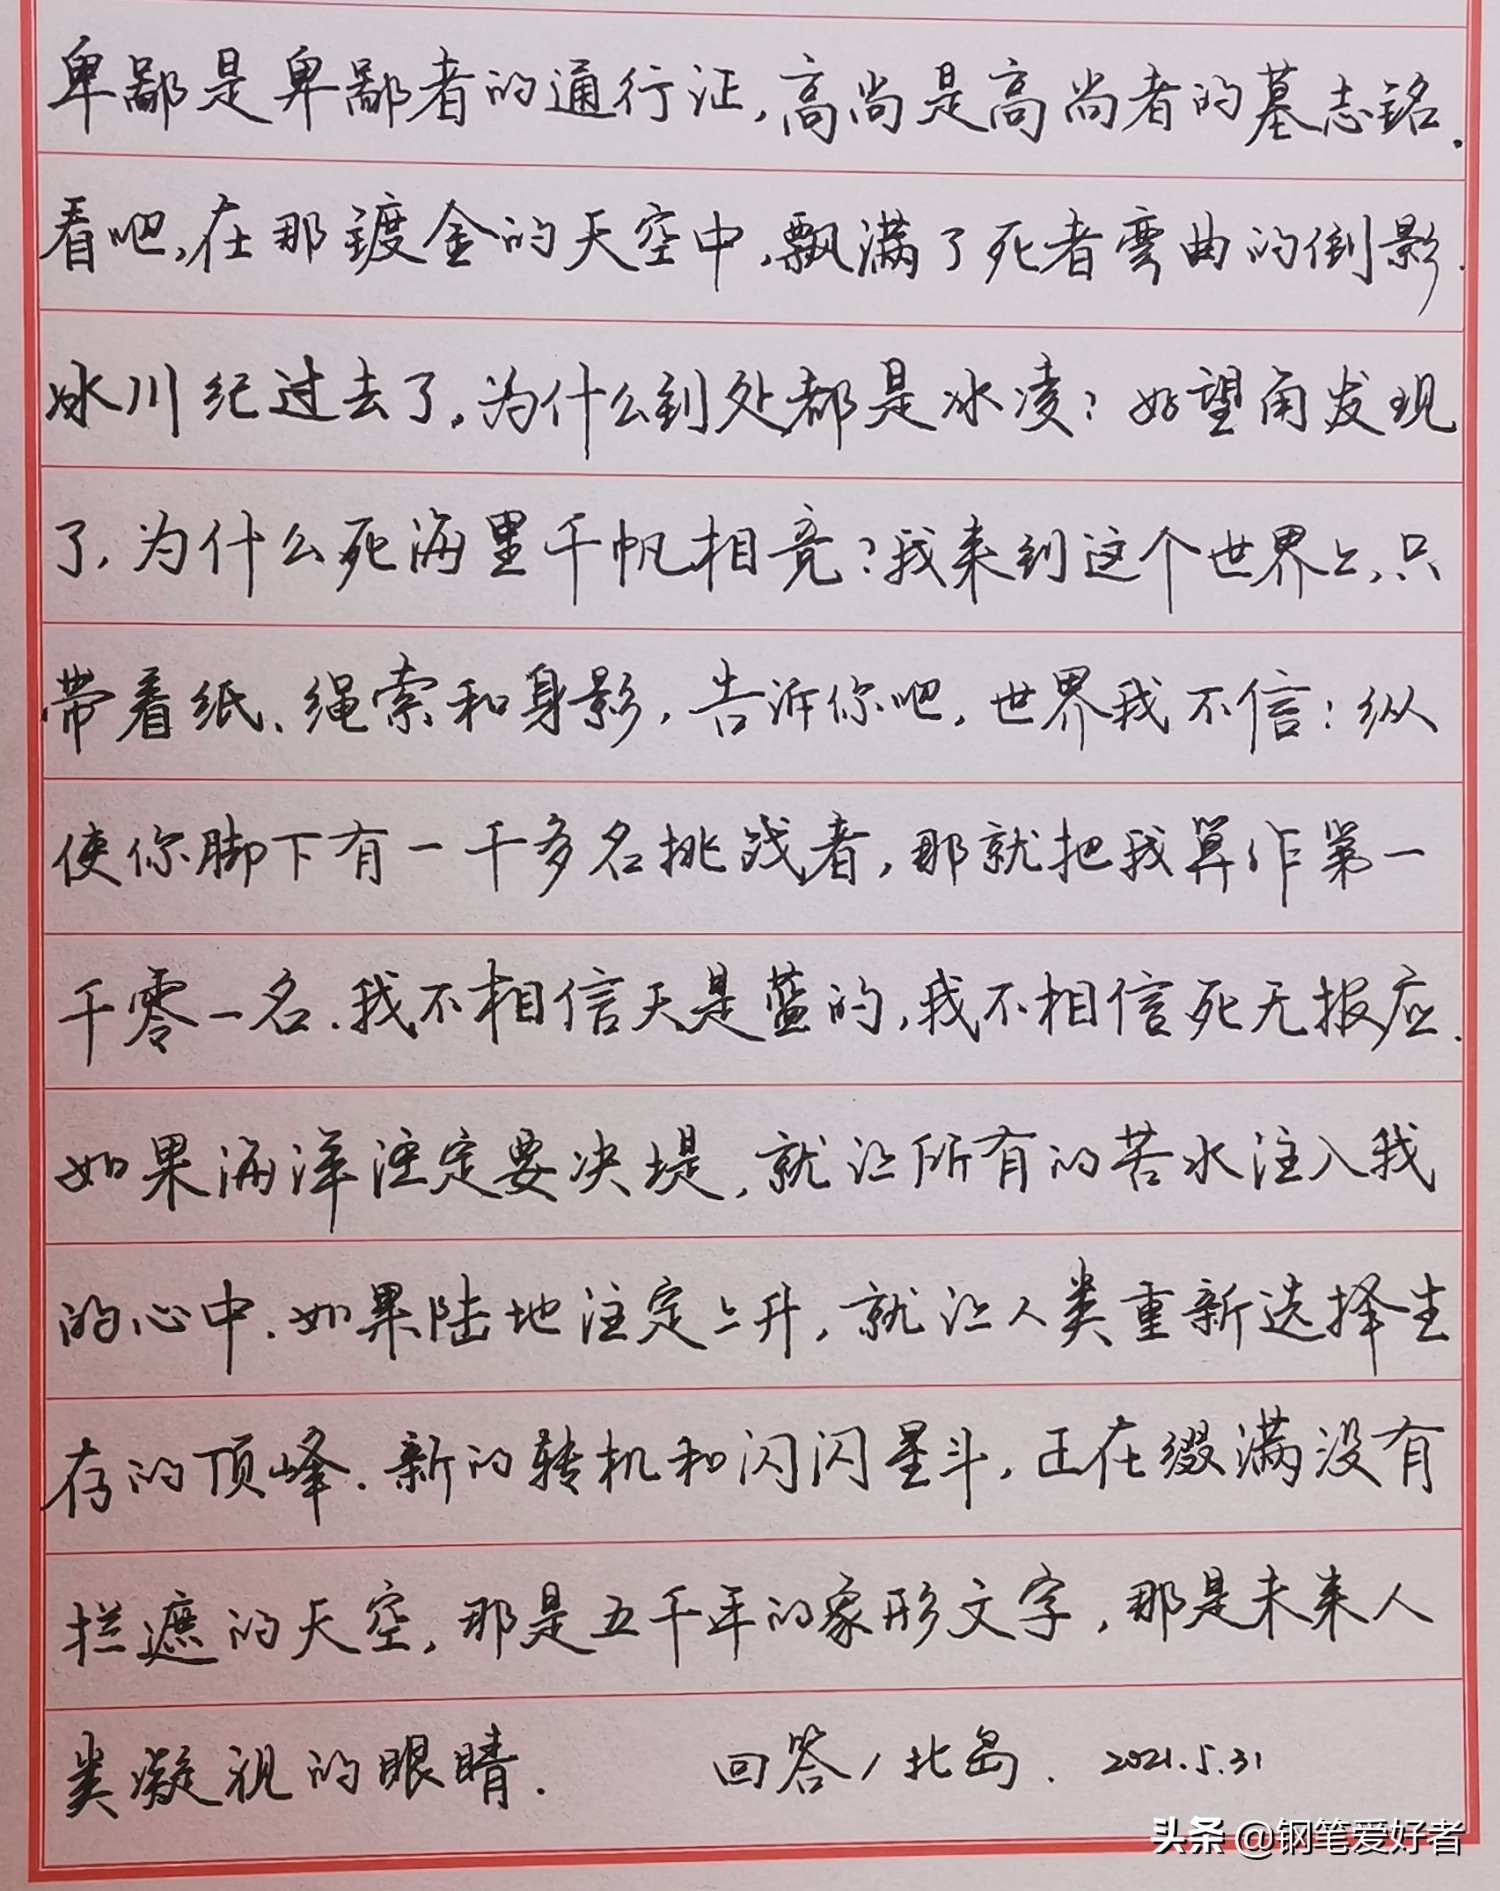 卑鄙是卑鄙者的通行证,高尚是高尚者的墓志铭.
看吧,在那镀金的天空中,飘满了死者弯曲的倒影.
冰川纪过去了,为什么到处都是冰凌?好望角发现
了,为什么死海里千帆相竞?我来到这个世界上,只
带着纸、绳索和身影,告诉你吧,世界我不信:纵
使你脚下有一千多名挑战者,那就把我算作第一
千零一名.我不相信天是蓝的,我不相信死无报应.
如果海洋注定要决堤,就让所有的苦水注入我
的心中.如果陆地注定上升,就让人类重新选择生
存的顶峰.新的转机和闪闪星斗,正在缀满没有
拦遮的天空,那是五千年的象形文字,那是未来人
类凝视的眼睛. 回答/北岛. 2021.5.31
头条 @钢笔爱好者